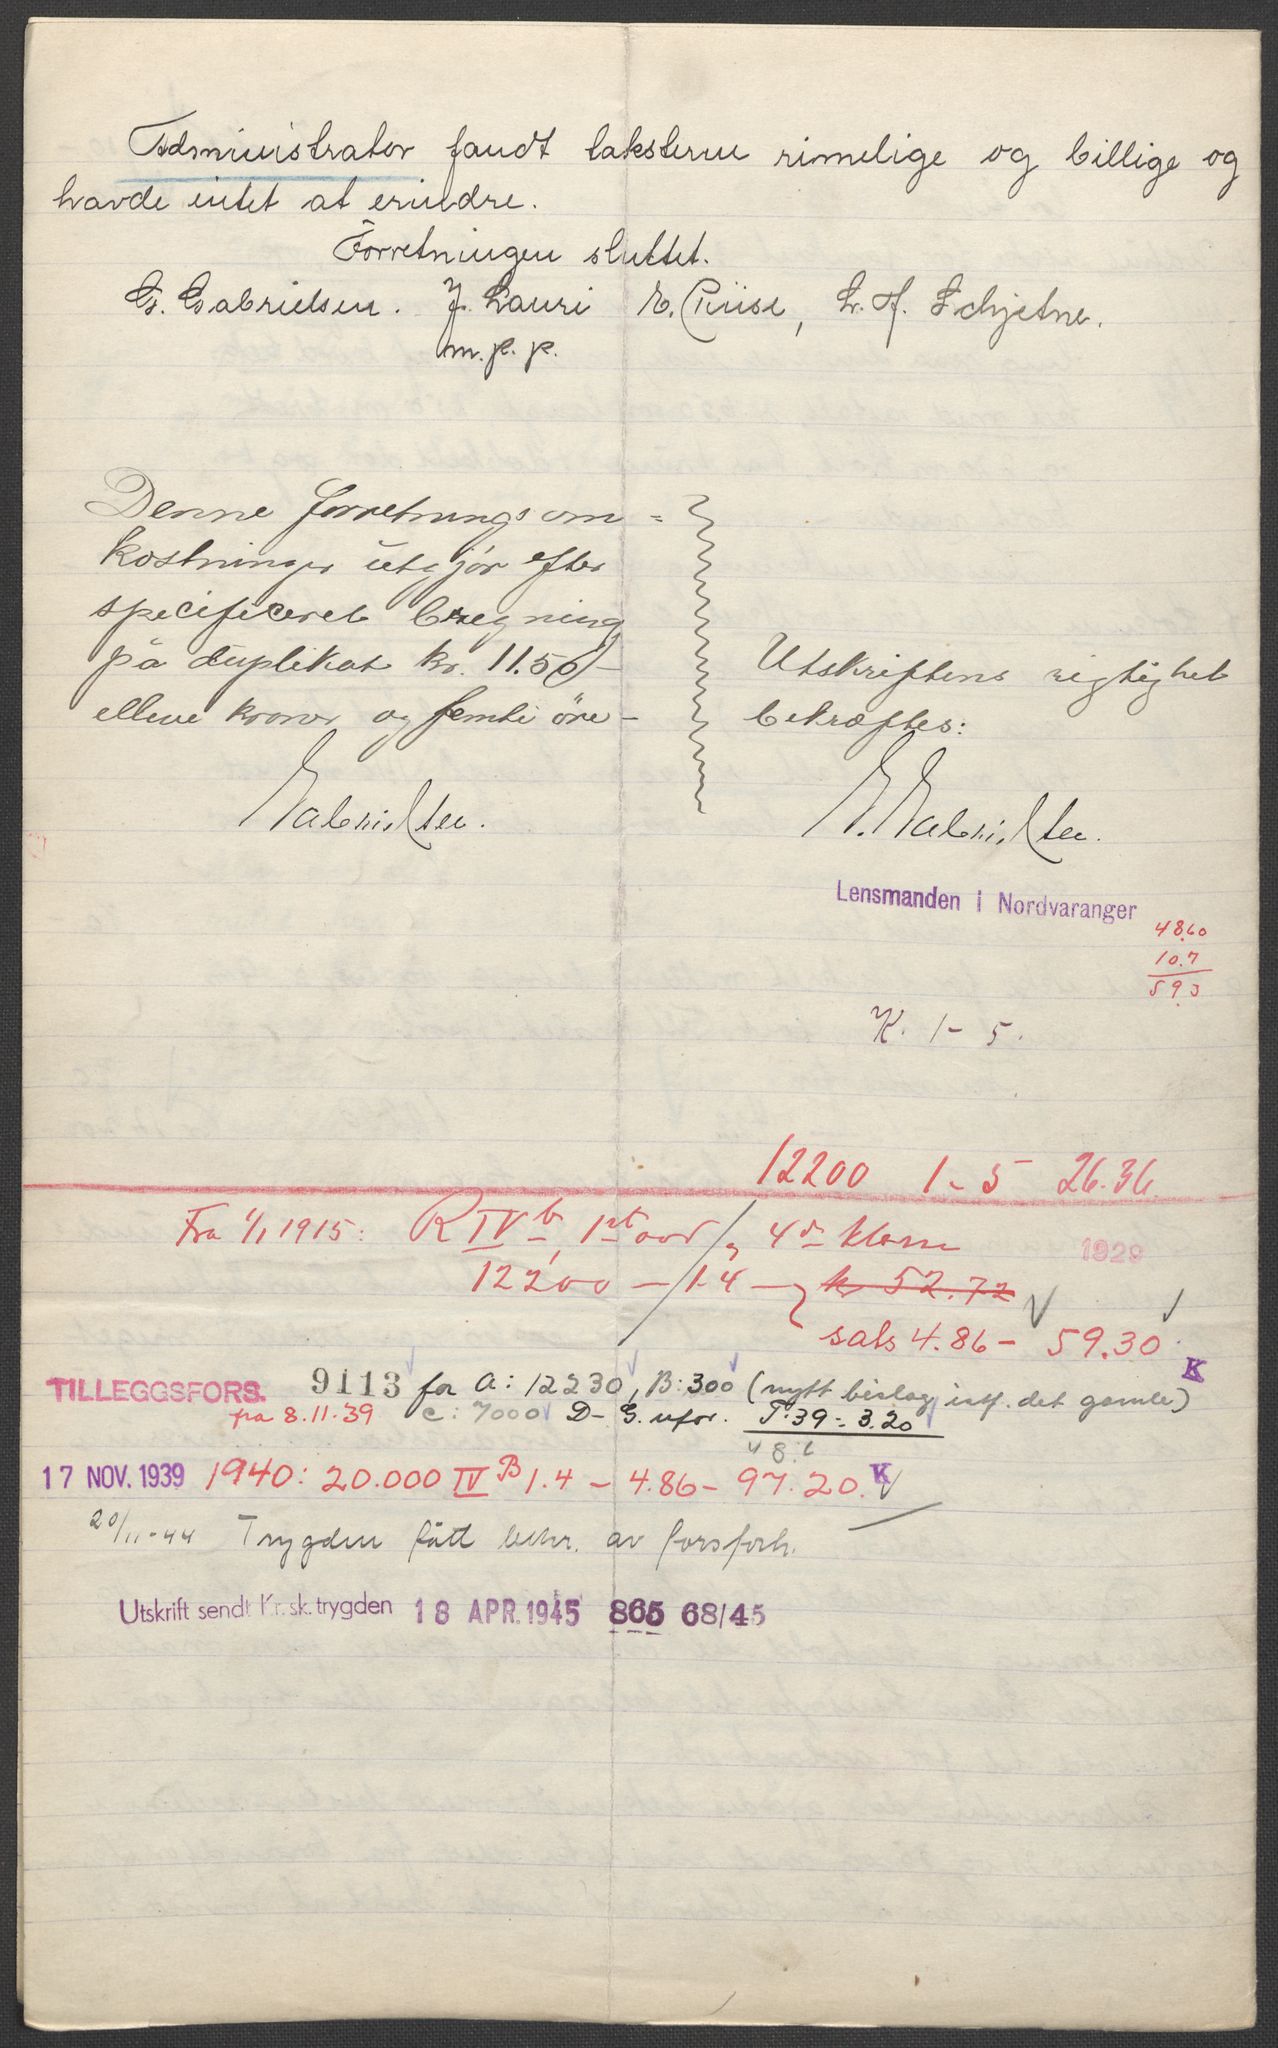 Administrator fandt taksterne rimelige og billige og
havde intet at erindre.
Forretningen sluttet.
G. Gabrielsen. J. Lauri E. Riise, L. H. Schjetne.
m.p.p.
Denne forretnings om=
kostninger utgjør efter
specificeret beregning
på duplikat kr. 11.50 –
elleve kroner og femti öre –
Gabrielsen.
Utskriftens rigtighet
bekræftes:
G. Gabrielsen.
Lensmanden i Nordvaranger
48.60
10.7
59.3
K. 1 – 5.
12200 1 – 5 26.36.
Fra 1/1 1915: R IV b, 1st ord, 4de klasse
1929
12200 — 1-4 — kr 52.72
sats 4.86 – 59.30
K
TILLEGGSFORS. 9113 for A: 12230, B: 300 (nytt bislag istf. det gamle)
på 8.11.39 C: 7000 D – G. ufor. T: 39 = 3.20
48.6
17 NOV. 1939 1940: 20.000 IV B 1.4 – 4.86 – 97.20. K
20/11-44 Trygden fått bekr. av forsforh.
Utskrift sendt Kr.sk.trygden 18 APR. 1945 865 68/45